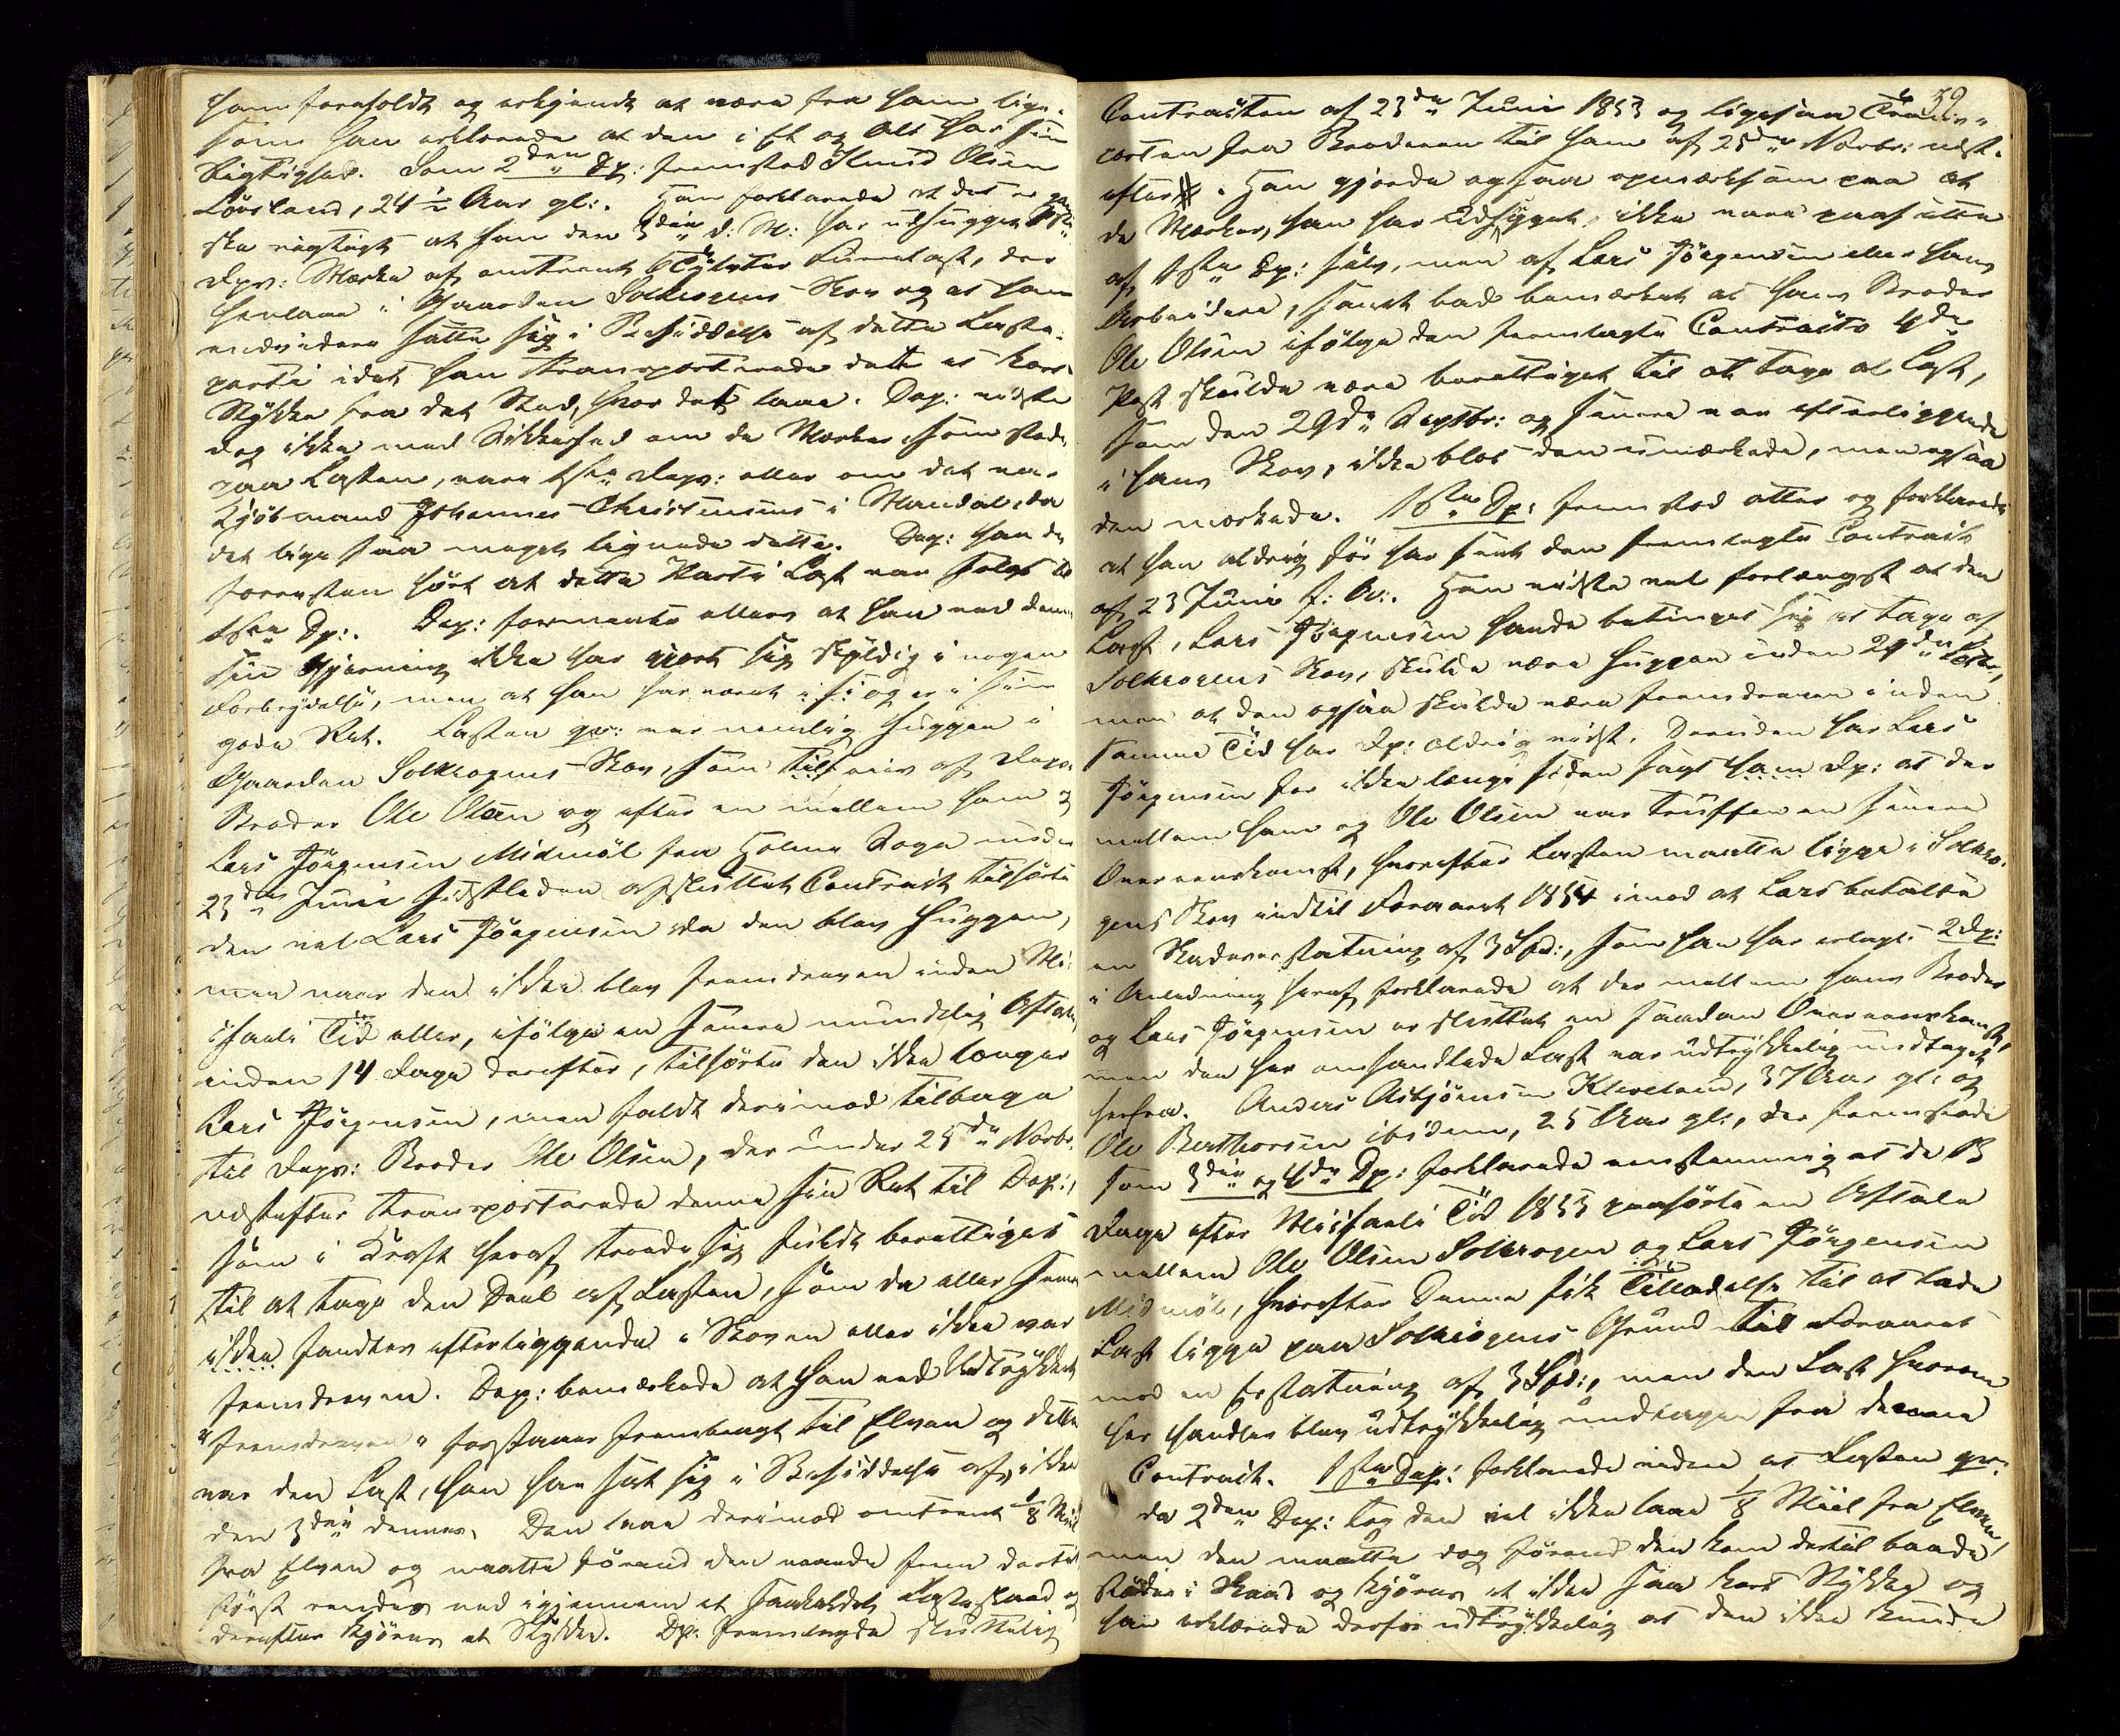 ham foreholdt og erkjendt at være fra ham lige-
som han erklærede at den i Et og Alt har sin
Rigtighed. Som 2den Dp: fremstod Knud Olsen
Løvsland, 24½ Aar gl:. Han forklarede at det er gan-
ske rigtigt at han den 3die d: M: har udhugget 1ste
Depv: Mærke af omtrent 6 Tylvter Furulast, der
henlaae i Gaarden Solkrogens Skov og at han
endvidere satte sig i Besiddelse af dette Laste-
parti idet han transporterede dette et kort
Stykke fra det Sted, hvor det laae. Dep: vidste
dog ikke med Sikkerhed om de Mærker, som stode
paa Lasten, vare 1ste Depv: eller om det var
Kjøbmand Johannes Christensens i Mandal, da
det lige saa meget lignede dette. Dep: havde
forresten hørt at dette Parti Last var solgt til
1ste Dp:. Dep: formente ellers at han ved denne
sin Gjerning ikke har gjort sig skyldig i nogen
Forbrydelse, men at han har været i sin
gode Ret. Lasten qv: var nemlig huggen i
Gaarden Solkrogens Skov, som tilhører Dep:
Broder Ole Olsen og efter en mellem ham og
Lars Jørgensen Midmøl fra Holme Sogn under
23de Juni sidstleden afsluttet Contract tilhørte
den vel Lars Jørgensen da den blev huggen,
men naar den ikke blev fremdreven inden Mi-
chaeli Tid eller, ifølge en senere mundtlig Aftale,
inden 14 Dage derefter, tilhørte den ikke længer
Lars Jørgensen, men faldt derimod tilbage
til Depv: Broder Ole Olsen, der under 25de Novbr.
næstefter transporterede denne sin Ret til Dep:,
som i Kraft heraf troede sig fuldt berettiget
til at tage den Deel af Lasten, som da eller senere
ikke fandtes efterliggende i Skoven eller ikke var
fremdreven. Dep: bemærkede at han ved Udtrykket
"fremdreven" forstaaer frembragt til Elven og dette
var den Last, han har sat sig i Besiddelse af, ikke
den 3die dennes. Den laae derimod omtrent 1/8 Miil
fra Elven og maatte førend den naaede frem dertil
først rendes ned igjennem et saakaldet Lasteskaad og
derefter kjøres et Stykke. Dp: fremlagde sluttelig
39
Contracten af 23de Juni 1853 og ligesaa Trans-
porten fra Broderen til ham af 25de Novbr: næst-
efter. Han gjorde ogsaa opmærksom paa at
de Mærker, han har Udhugget, ikke vare paasatte
af 1ste Dp: selv, men af Lars Jørgensen eller hans
Arbeidere, samt bad bemærket at hans Broder
Ole Olsen ifølge den fremlagte Contracts 4de
Post skulde være berettiget til at tage al Last,
som den 29de Septbr: og senere var efterliggende
i hans Skov, ikke blot den umærkede, men ogsaa
den mærkede. 1ste Dp: fremstod atter og forklarede
at han aldrig før har seet den fremlagte Contract
af 23 Juni f: A:. Han vidste vel forlængst at den
Last, Lars Jørgensen havde betinget sig at tage af
Solkrogens Skov, skulde være huggen inden 29de Septbr,
men at den ogsaa skulde være fremdreven inden
samme Tid har Dp: aldrig vidst. Desuden har Lars
Jørgensen for ikke længe siden sagt ham Dp: at der
mellem ham og Ole Olsen var truffen en senere
Overeenskomst, hvorefter Lasten maatte ligge i Solkro-
gens Skov indtil Foraaret 1854 imod at Lars betalte
en Skadeserstatning af 3 Spd:, som han har erlagt. 2 Dp:
i Anledning heraf forklarede at der mellem hans Broder
og Lars Jørgensen er sluttet en saadan Overeenskomst,
men den her omhandlede Last var udtrykkelig undtaget
herfra. Anders Asbjørnsen Kleveland, 37 Aar gl: og
Ole Berthorsen ibidem, 25 Aar gl:, der fremstode
som 3die og 4de Dp: forklarede eenstemmig at de 13
Dage efter Michaeli Tid 1853 paahørte en Aftale
mellem Ole Olsen Solkrogen og Lars Jørgensen
Midmøl, hvorefter Denne fik Tilladelse til at lade
Last ligge paa Solkrogens Grund til Foraaret
mod en Erstatning af 3 Spd:, men den Last hvorom
her handles blev udtrykkelig undtagen fra denne
Contract. 1ste Dep: forklarede videre at Lasten qv:
da 2den Dep: tog den vel ikke laae 1/8 Miil fra Elven,
men den maatte dog førend den kom dertil baade
i Skaad og kjøres et ikke saa kort Stykke og
han erklærede derfor udtrykkelig at den ikke kunde